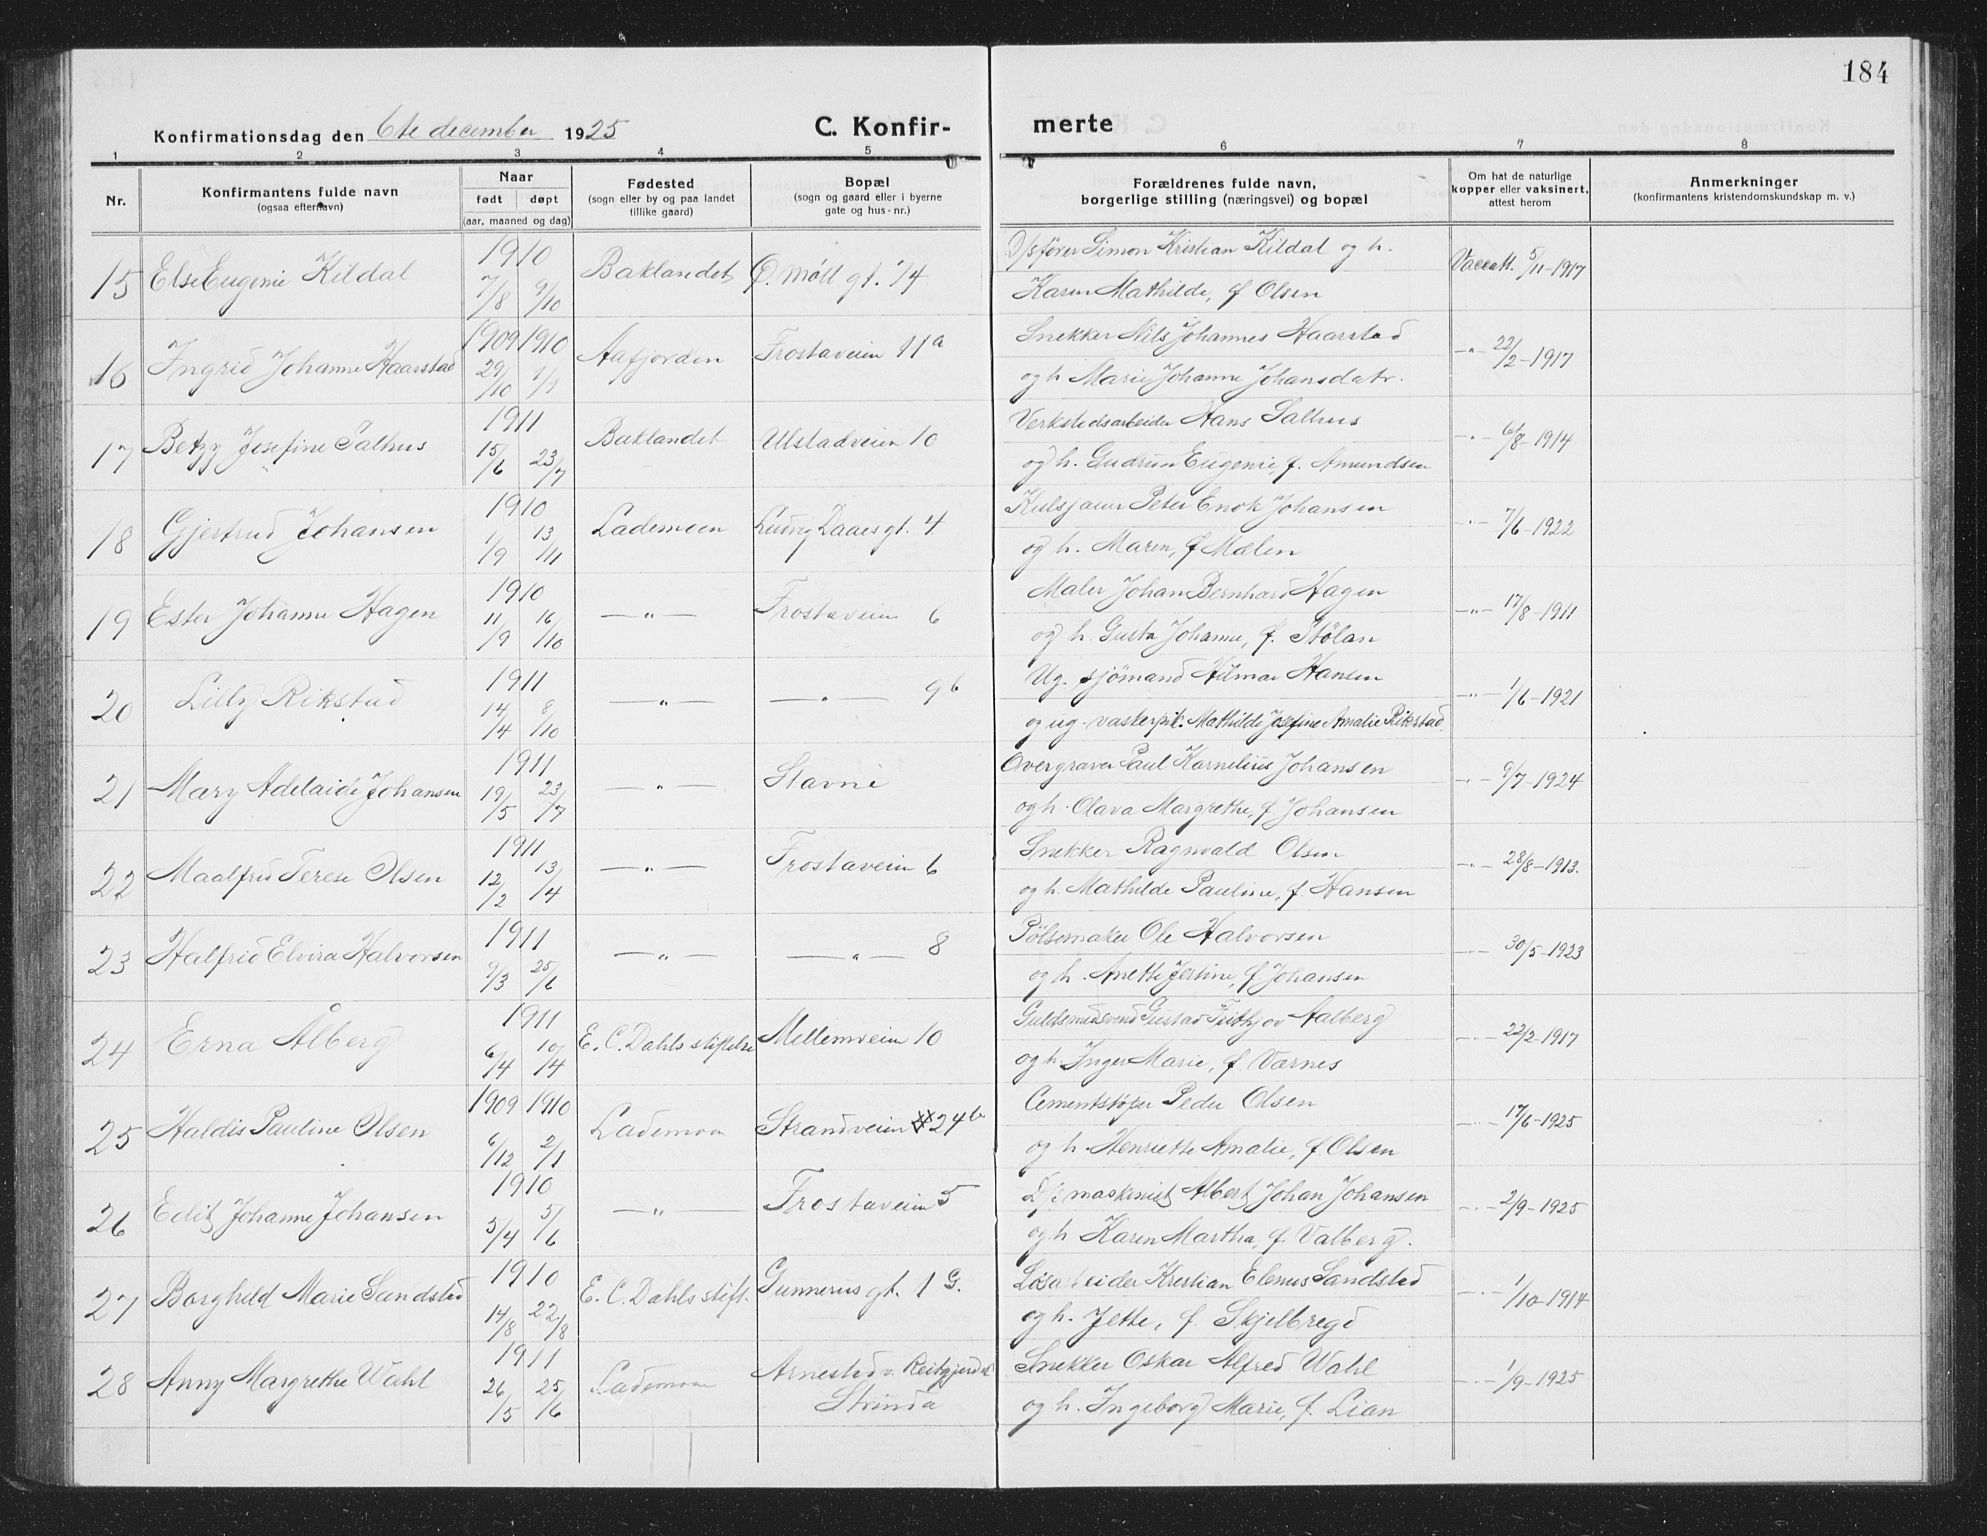 184
Konfirmationsdag den 6te december 1925 C. Konfir-merte
1 2 3 4 5 6 7 8
Nr.
Konfirmantens fulde navn
(ogsaa efternavn)
Naar
født døpt
(aar, maaned og dag)
Fødested
(sogn eller by og paa landet
tillike gaard)
Bopæl
(sogn og gaard eller i byerne
gate og hus-nr.)
Forældrenes fulde navn,
borgerlige stilling (næringsvei) og bopæl
Om hat de naturlige
kopper eller vaksinert,
attest herom
Anmerkninger
(konfirmantens kristendomskundskap m. v.)
1910 D/sfører Simon Kristian Kildal og h.
15 Else Eugenie Kildal 7/8 9/10 Baklandet Ø. Møll gt. 14 Vaccatt. 5/11-1917
Karen Mathilde, f Olsen
1909 1910 Snekker Nils Johannes Haarstad
16 Ingrid Johanne Haarstad 29/10 1/1 Aafjorden Frostaveien 11a -"- 22/2-1917
og h Marie Johanne Johansdatr.
1911 Verkstedsarbeider Hans Salhus
17 Betzy Josefine Salhus 15/6 23/7 Baklandet Ulstadveien 10 -"- 6/8-1914
og h. Gudrun Eugenie, f. Amundsen
1910 Kulsjauer Peter Enok Johansen
18 Gjertrud Johansen 1/9 13/11 Lademoen Ludvig Daaes gt. 4 -"- 7/6-1922
og h. Maren, f Mælen
1910 Maler Johan Bernhard Hagen
19 Ester Johanne Hagen 11/9 16/10 -"- Frostaveien 6 -"- 17/8-1911
og h. Gusta Johanne, f. Stølan
1911 Ug. sjömand Hilmar Hansen
20 Lilly Rikstad 14/4 8/10 -"- -"- 9b -"- 1/6-1921
og ug. vaskerpik. Mathilde Josefine Amalie Rikstad
1911 Overgraver Paul Kornelius Johansen
21 Mary Adelaide Johansen 19/5 23/7 -"- Stavne -"- 9/7-1924
og h. Olava Margrethe, f Johansen
1911 Snekker Ragnvald Olsen
22 Maalfrid Terese Olsen 12/2 13/4 -"- Frostaveien 6 -"- 28/8-1913.
og h. Mathilde Pauline, f. Hansen
1911 Pölsemaker Ole Halvorsen
23 Halfrid Elvira Halvorsen 9/3 25/6 -"- -"- 8 -"- 30/5-1923
og h. Anette Jestine, f Johansen
1911 Guldsmedsvend Gustav Frithjov Aalberg
24 Erna Ålberg 6/4 10/4 E. C. Dahls stiftelse Mellemveien 10 -"- 22/2-1917
og h. Inger Marie, f. Værnes
1909 1910 Cementstøper Peder Olsen
25 Haldis Pauline Olsen 6/12 2/1 Lademoen Strandveien 24b -"- 17/6-1925
og h. Henriette Amalie, f Olsen
1910 D/s maskinist Albert Johan Johansen
26 Edit Johanne Johansen 5/4 5/6 -"- Frostaveien 5 -"- 2/9-1925
og h Karen Martha, f. Valberg.
1910 Løsarbeider Kristian Elenus Sandstad
27 Borghild Marie Sandstad 14/8 22/8 E. C. Dahls stift. Gunnerus gt. 1 G. -"- 1/10-1914
og h. Jette, f Skjelbregd
1911 Snekker Oskar Alfred Wahl
28 Anny Margrethe Wahl 26/5 25/6 Lademoen Arnestad v. Reitgjerdet -"- 1/9-1925
Strinda og h. Ingeborg Marie, f. Lian